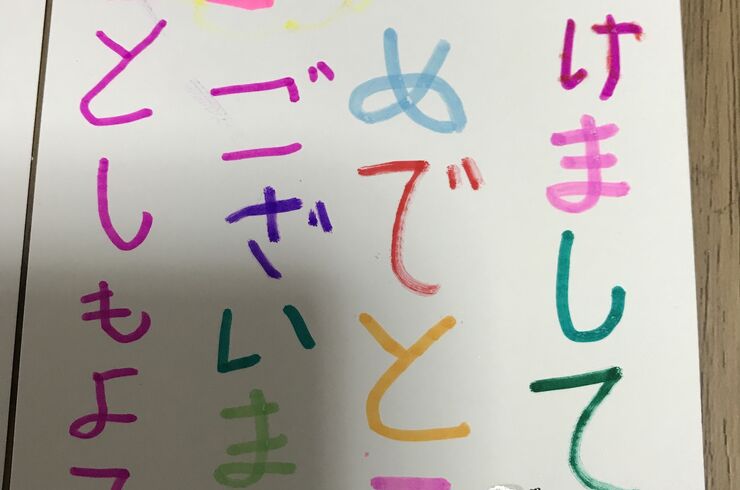 けまして
めでと
ございま
としもよ